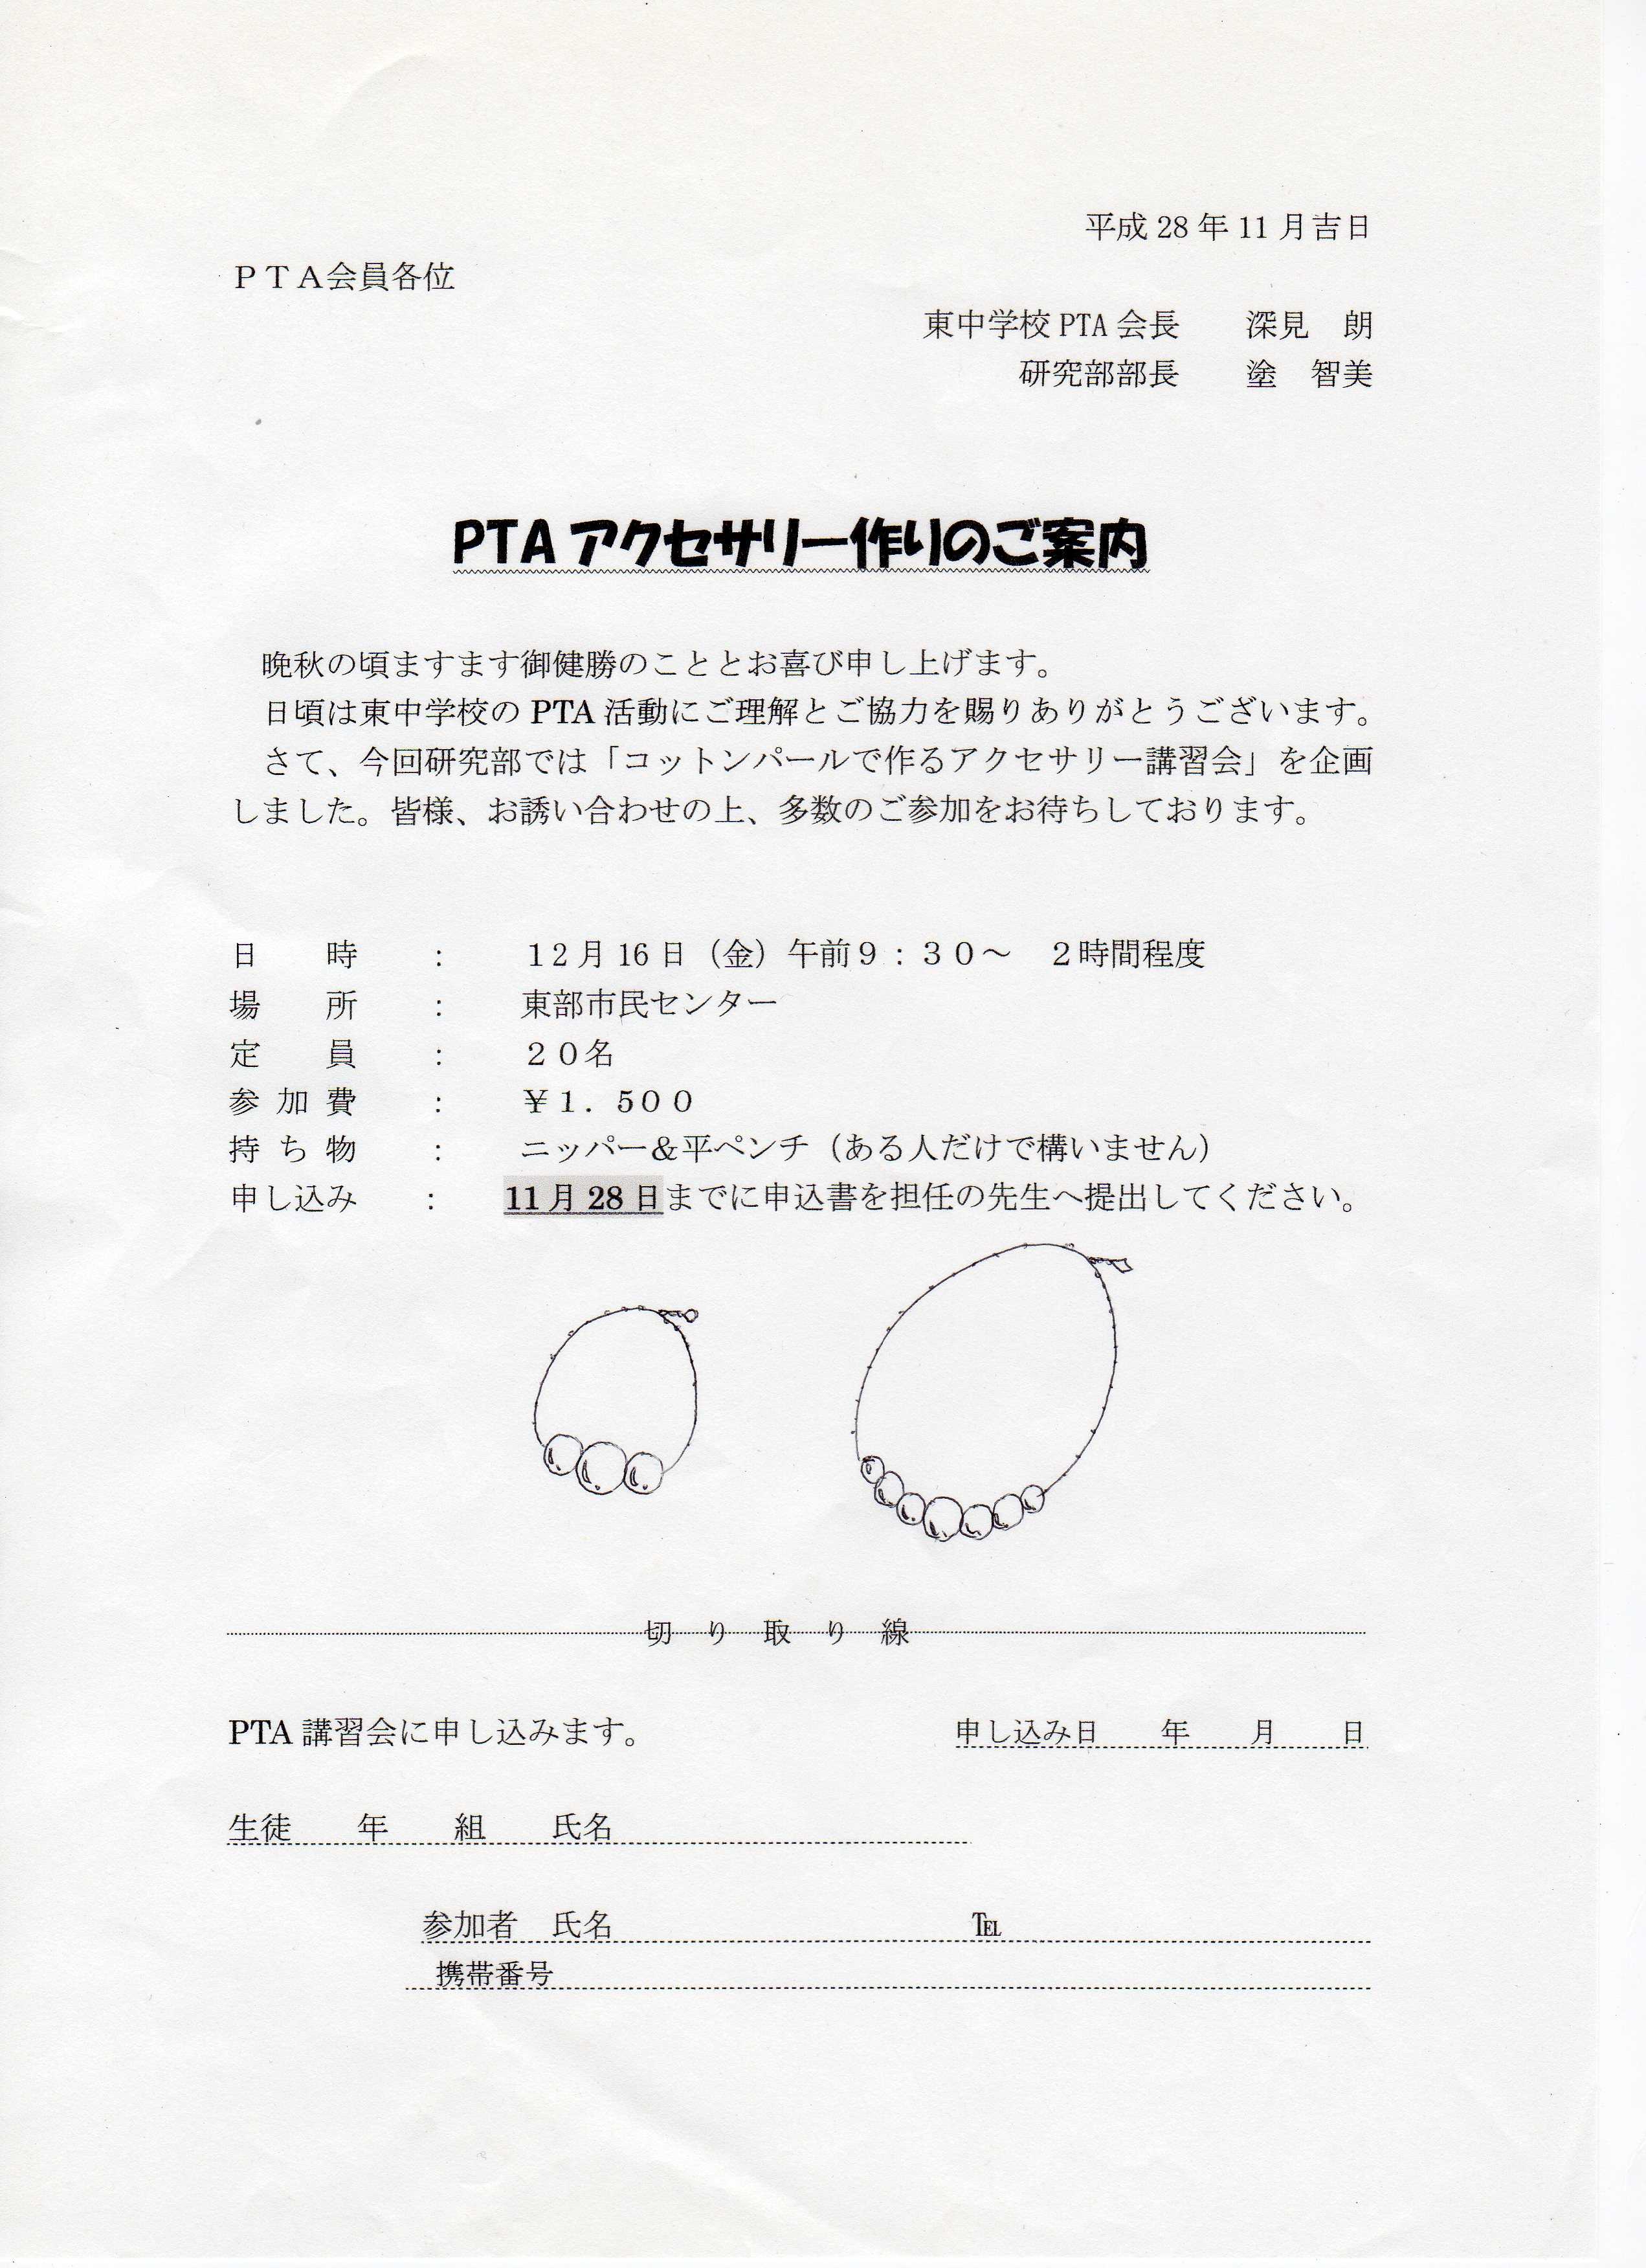 平成 28 年 11 月吉日
ＰＴＡ会員各位
東中学校 PTA 会長　　深見　朗
研究部部長　　塗　智美
PTA アクセサリー作りのご案内
晩秋の頃ますます御健勝のこととお喜び申し上げます。
日頃は東中学校の PTA 活動にご理解とご協力を賜りありがとうございます。
さて、今回研究部では「コットンパールで作るアクセサリー講習会」を企画
しました。皆様、お誘い合わせの上、多数のご参加をお待ちしております。
日　　時　　：　　１２月 16 日（金）午前９：３０～　２時間程度
場　　所　　：　　東部市民センター
定　　員　　：　　２０名
参 加 費　　：　　￥１．５００
持 ち 物　　：　　ニッパー＆平ペンチ（ある人だけで構いません）
申し込み　　：　　11 月 28 日までに申込書を担任の先生へ提出してください。
切　り　取　り　線
PTA 講習会に申し込みます。　　申し込み日　　年　　月　　日
生徒　　年　　組　　氏名
参加者　氏名　　　　　　℡
携帯番号